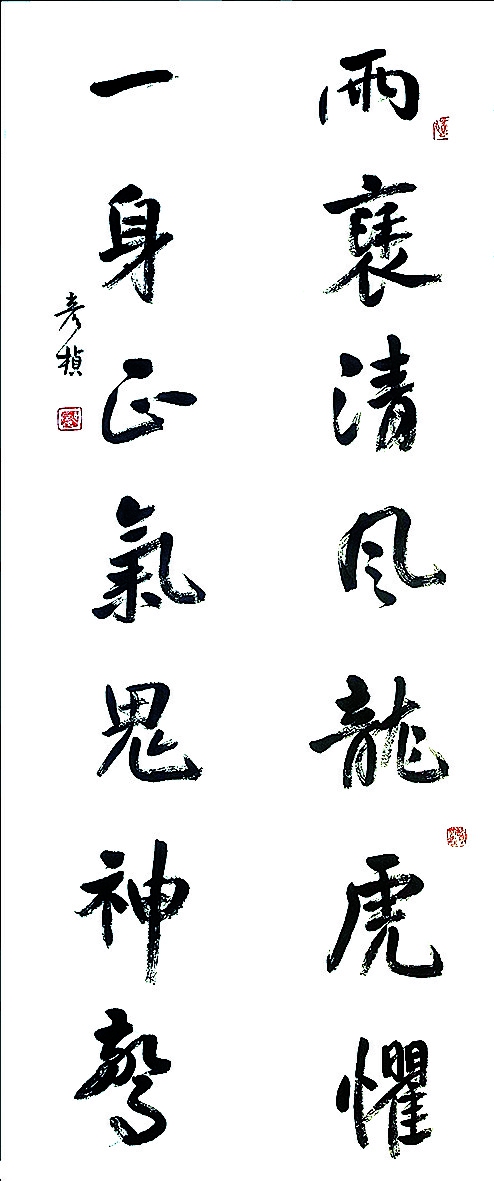 兩褎清風龍虎懼
一身正氣鬼神驚
彥楨